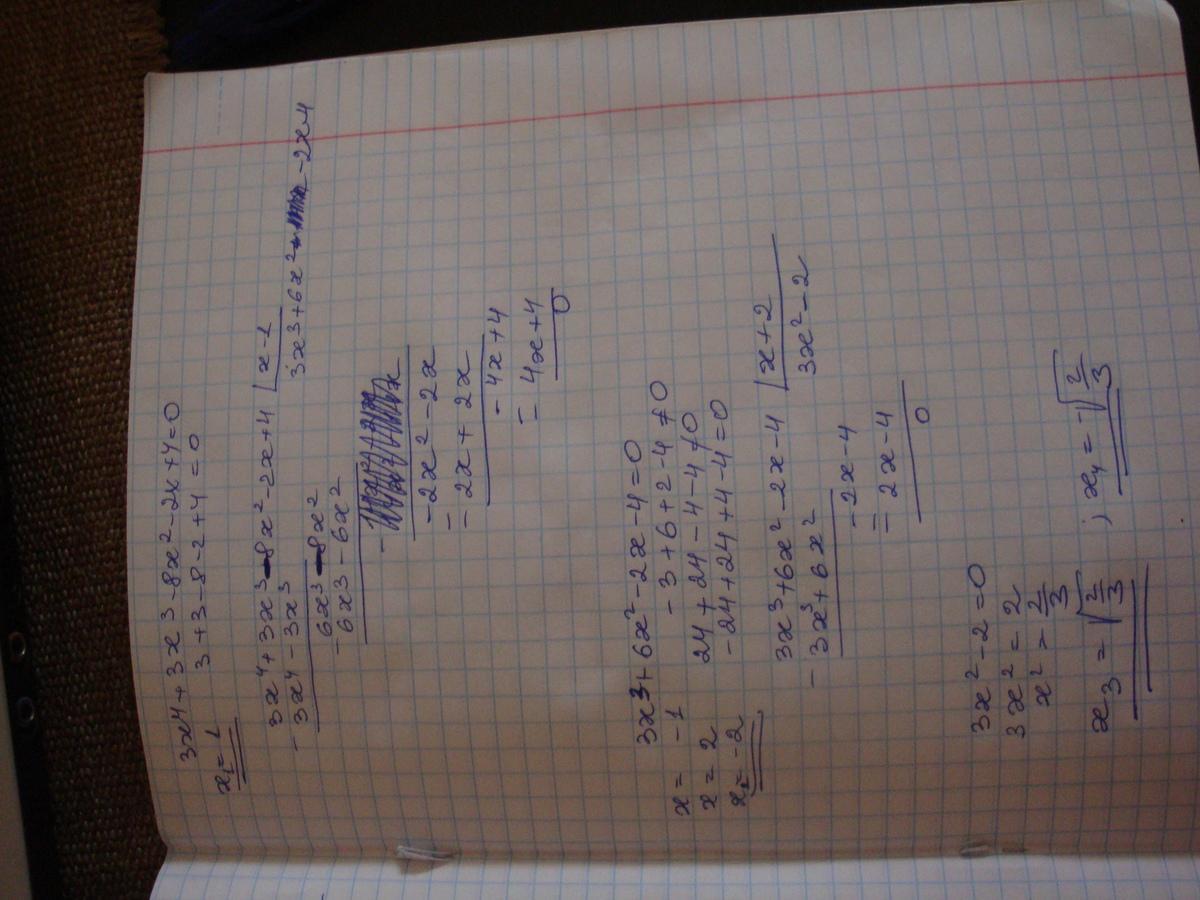 3x4 + 3x3 - 8x2 - 2x + 4 = 0
3 + 3 - 8 - 2 + 4 = 0
x1 = 1
3x4 + 3x3 - 8x2 - 2x + 4 | x - 1
- 3x4 - 3x3
3x3 + 6x2 - 2x 4
6x3 - 8x2
- 6x3 - 6x2
- 2x2 - 2x
- 2x + 2x
- 4x + 4
- 4x + 4
0
3x3 + 6x2 - 2x - 4 = 0
x = -1 - 3 + 6 + 2 - 4 ≠ 0
x = 2 24 + 24 - 4 - 4 ≠ 0
x2 = -2 - 24 + 24 + 4 - 4 = 0
3x3 + 6x2 - 2x - 4 | x + 2
- 3x3 + 6x2 3x2 - 2
- 2x - 4
- 2x - 4
0
3x2 - 2 = 0
3x2 = 2
x2 = 2/3
x3 = √2/3 ; x4 = -√2/3